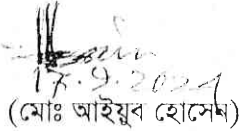 17.9.2024
(মোঃ আইয়ুব হোসেন)